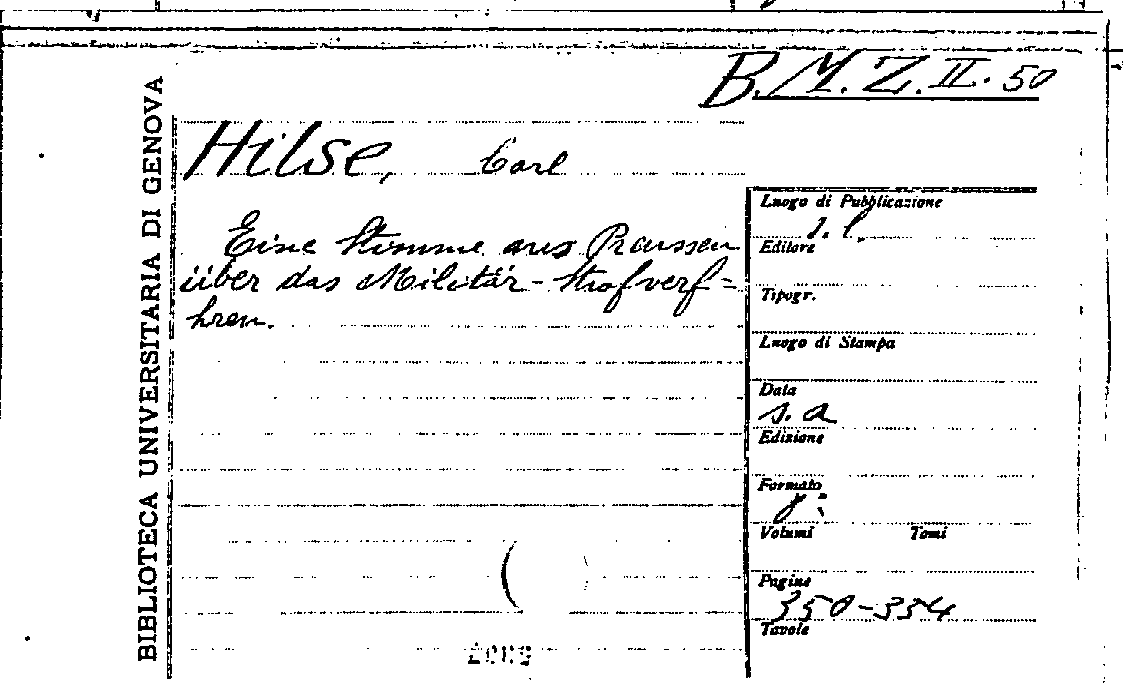 B.M.Z.II.50
BIBLIOTECA UNIVERSITARIA DI GENOVA
Hilse, Carl
Eine Stimme aus Preussen
über das Militär-Strafverf=
hren.
Luogo di Pubblicazione
s.l.
Editore
Tipogr.
Luogo di Stampa
Data
s.a
Edizione
Formato
8:
Volumi Tomi
Pagine
350-354
Tavole